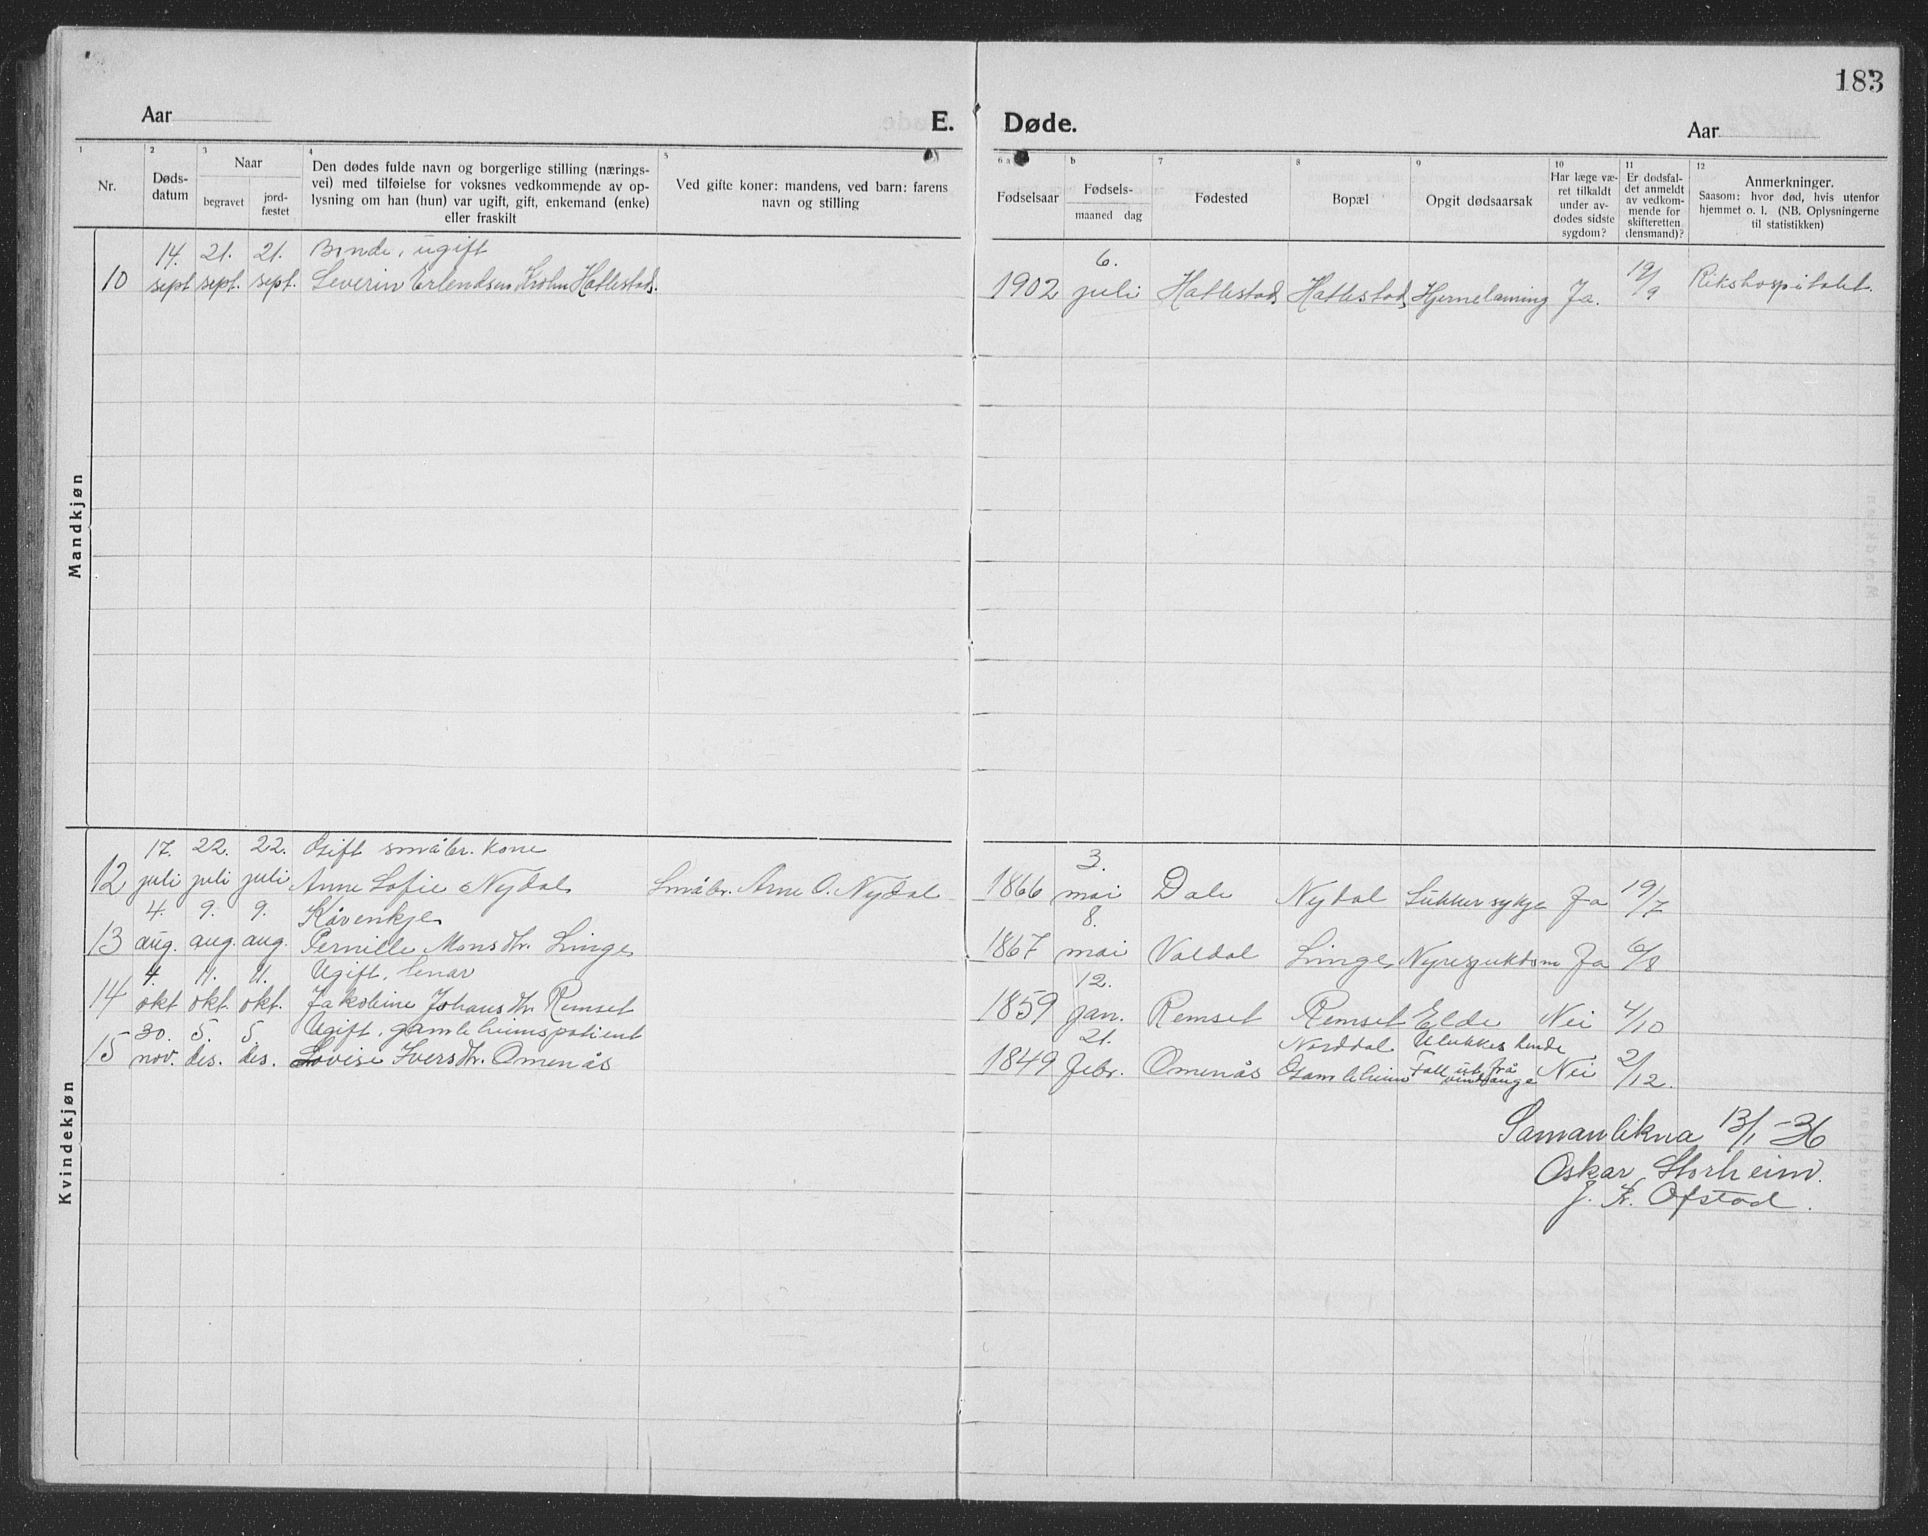 183
Aar E. Døde. Aar
1 2 3 4 5 6 a b 7 8 9 10 11 12
Nr.
Døds-
datum
Naar
begravet
jord-
fæstet
Den dødes fulde navn og borgerlige stilling (nærings-
vei) med tilføielse for voksnes vedkommende av op-
lysning om han (hun) var ugift, gift, enkemand (enke)
eller fraskilt
Ved gifte koner: mandens, ved barn: farens
navn og stilling
Fødselsaar
Fødsels-
maaned dag
Fødested
Bopæl
Opgit dødsaarsak
Har læge væ-
ret tilkaldt
under av-
dødes sidste
sygdom?
Er dødsfal-
det anmeldt
av vedkom-
mende for
skifteretten
(lensmand)?
Anmerkninger.
Saasom: hvor død, hvis utenfor
hjemmet o. l. (NB. Oplysningerne
til statistikken)
Mandkjøn
14. 21. 21. Bonde, ugift 6.
10 sept sept. sept. Severin Erlendsen Krohn Hatlestad. 1902 juli Hatlestad Hatlestad Hjernelaming Ja. 19/9 Rikshospitalet.
Kvindekjøn
17. 22. 22. Gift småbr. kone 3.
12 juli juli juli Anne Sofie Nydal Småbr. Arne O. Nydal 1866 mai Dale Nydal Sukkersykje Ja 19/7
4. 9. 9. Kårenkje 8.
13 aug. aug. aug. Pernille Monsdtr. Linge 1867 mai Valdal Linge Nyresjukdom Ja 6/8
4. 11. 11. Ugift, 12.
14 okt okt. okt. Jakobine Johansdtr. Remset 1859 jan. Remset Remset Elde Nei 4/10
30. 5. 5. Ugift, gamleheimspatient 21. Norddal Ulukkeshende
15 nov. des. des. Lovise Iversdtr. Omenås 1849 febr. Omenås Gamleheim Fall ut frå Nei 2/12.
Samanlikna 13/1-36
Oskar Storheim.
J. K. Ofstad.